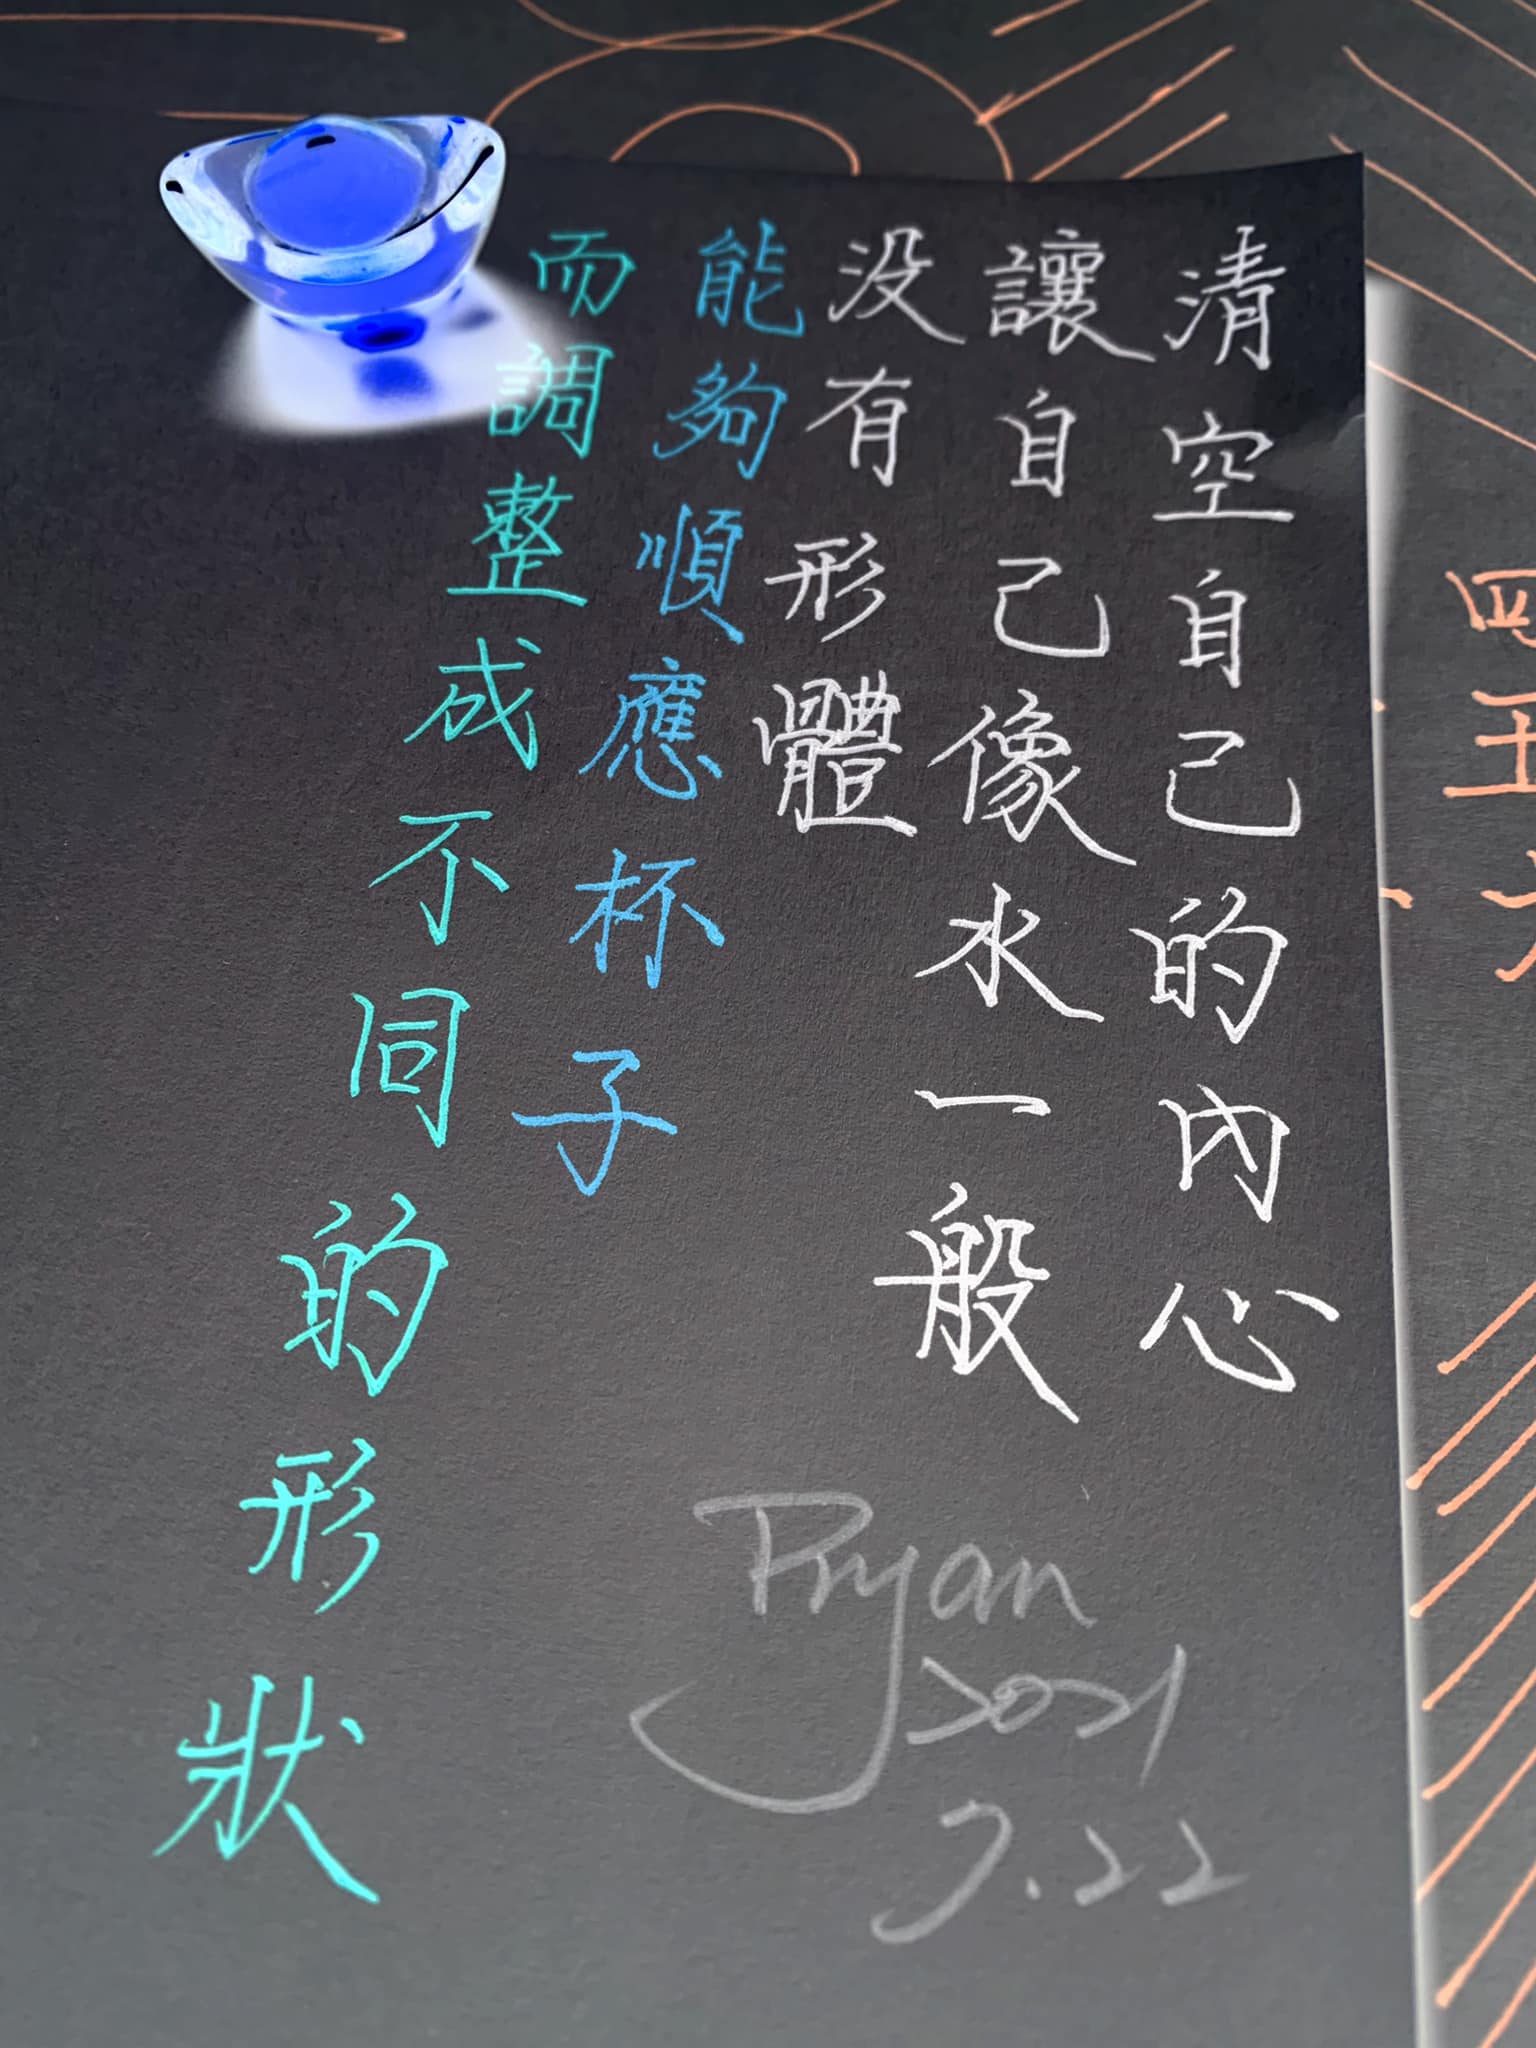 清空自己的內心
讓自己像水一般
没有形體
能夠順應杯子
而調整成不同的形狀
Ryan
2021
7.22